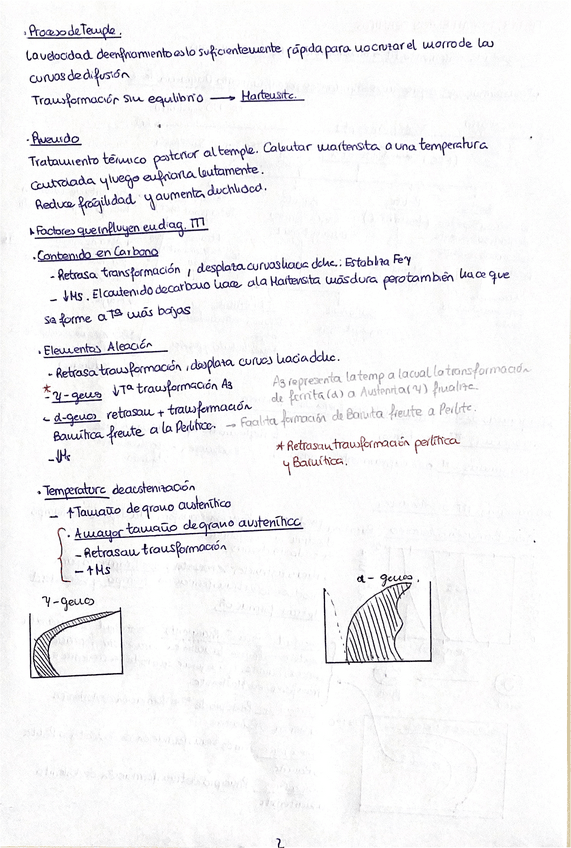 · Proceso de Temple.
La velocidad de enfriamiento es lo suficientemente rápida para no cruzar el morro de las
curvas de difusión
Transformación sin equilibrio → Martensite.
· Revenido
Tratamiento térmico posterior al temple. Calentar martensita a una temperatura
controlada y luego enfriarla lentamente.
Reduce fragilidad y aumenta ductilidad.
Factores que influyen en diag. TTT
· Contenido en Carbono
- Retrasa transformación, desplaza curvas hacia dche.: Estabiliza Feγ
- ↓Ms. El contenido de carbono hace a la Martensita más dura pero también hace que
se forme a Tª más bajas
· Elementos Aleación
- Retrasa transformación, desplaza curvas hacia dche.
* - γ-genos ↓Tª transformación A3
A3 representa la temp a la cual la transformación
de ferrita (α) a Austenita (γ) finaliza.
- α-genos retrasan + transformación
Bainítica frente a la Perlítica. → Facilita formación de Bainita frente a Perlite.
- ↓Ms
* Retrasan transformación perlítica
y Bainítica.
· Temperatura de austenización
- ↑Tamaño de grano austenítico
· A mayor tamaño de grano austenítico
- Retrasan transformación
- ↑Ms
γ-genos
α-genos.
2